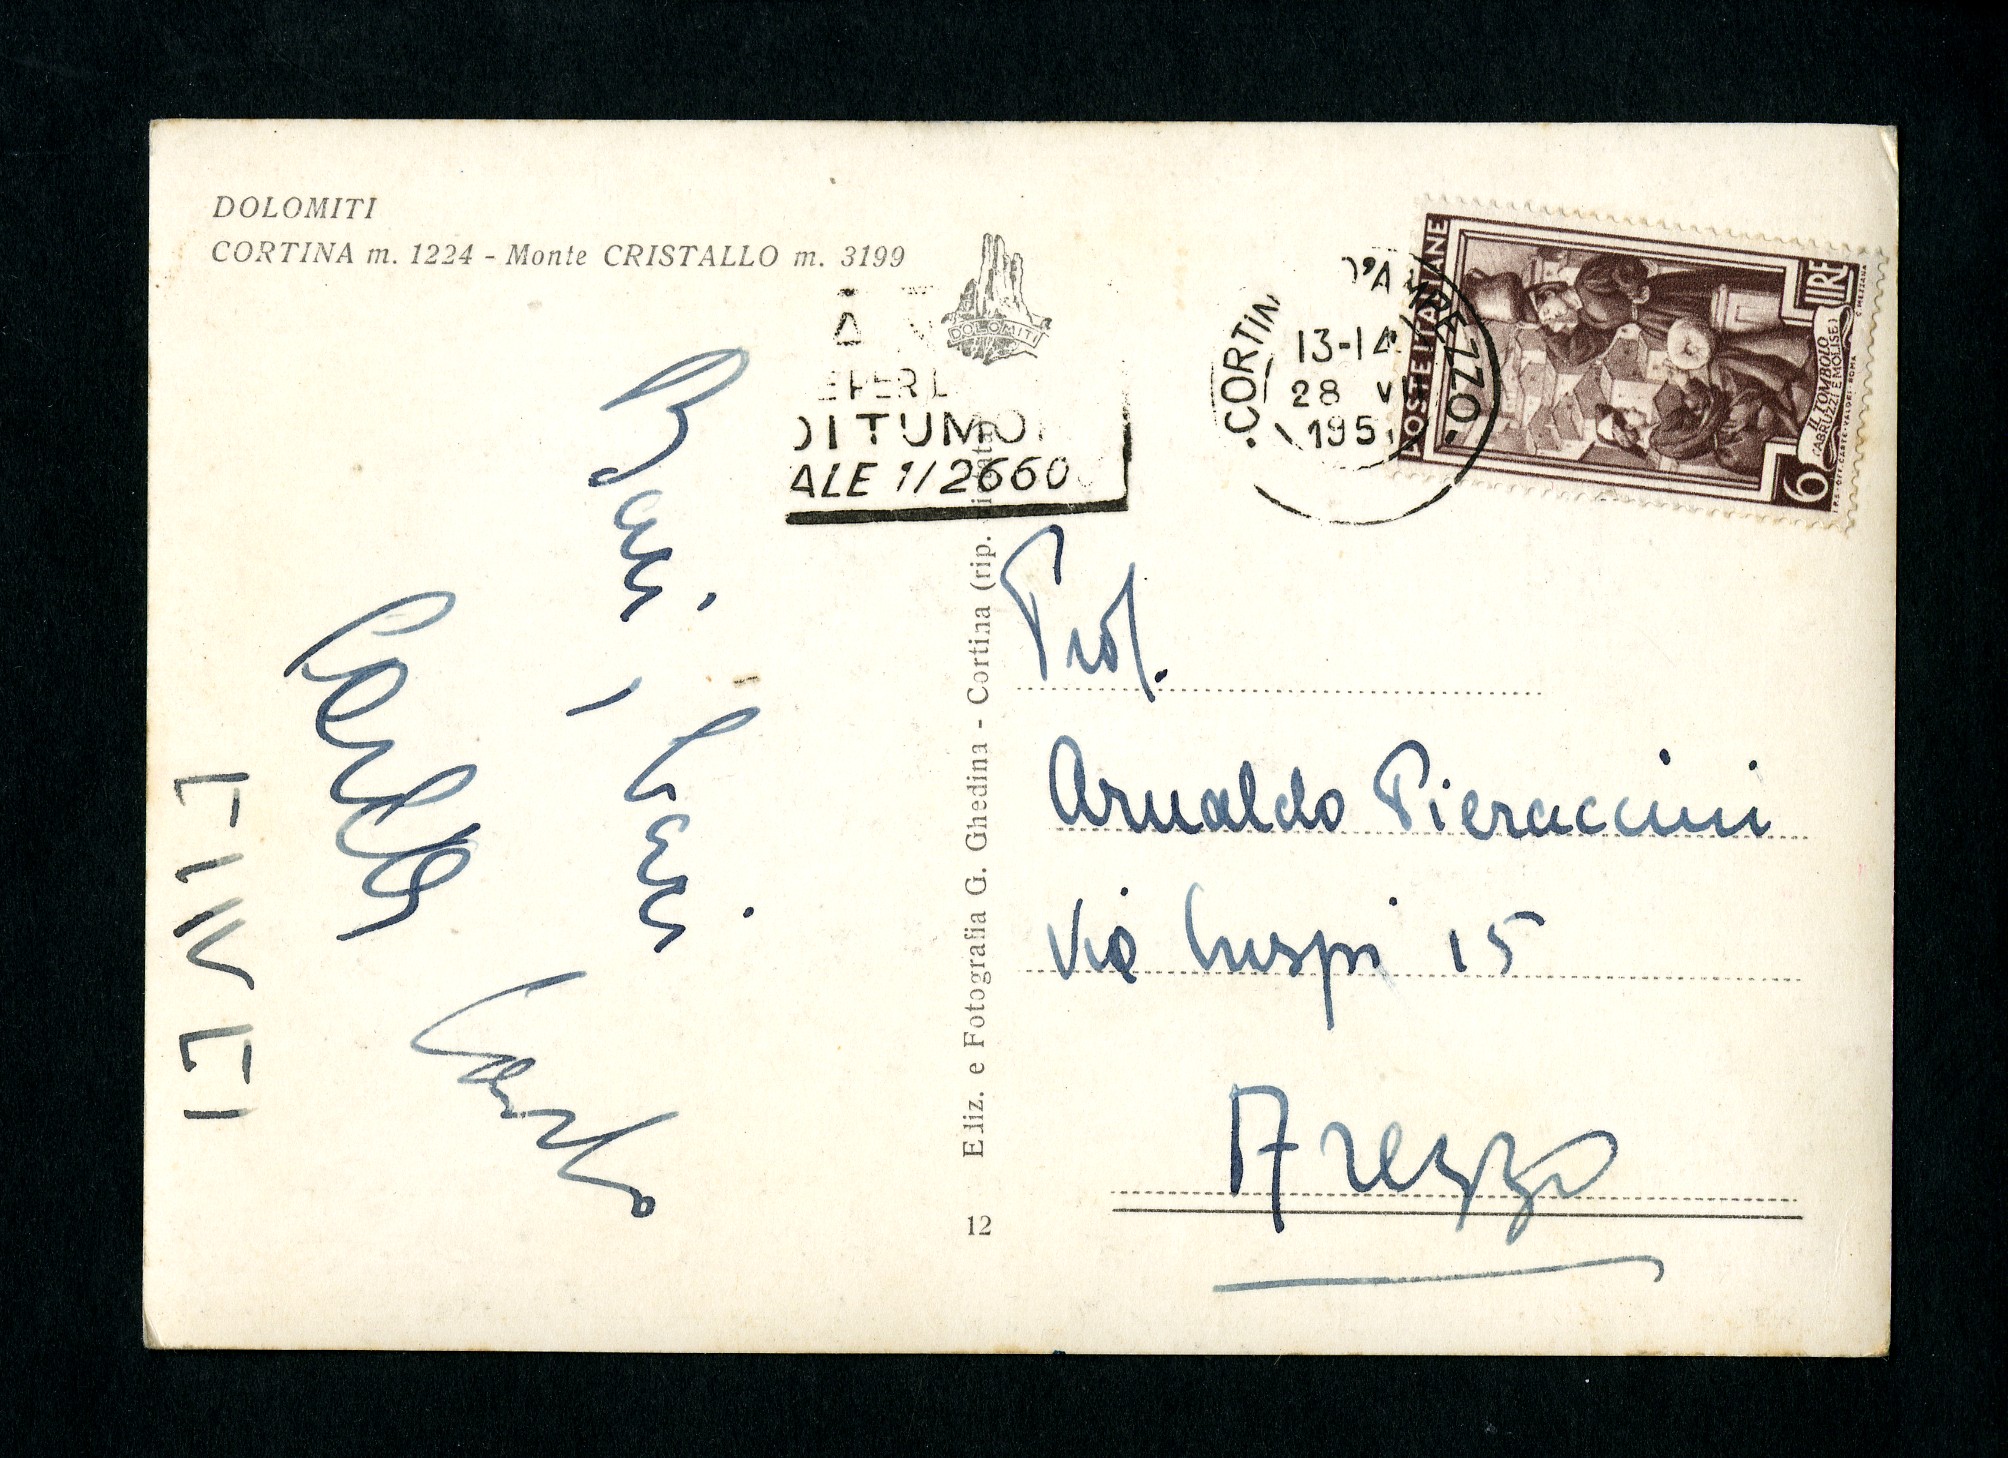 DOLOMITI
CORTINA m. 1224 - Monte CRISTALLO m. 3199
DOLOMITI
E PER L
DI TUMO
ALE 1/2660
CORTIN D'AMPEZZO
13-14
28 V
195
POSTE ITALIANE
LIRE
6
IL TOMBOLO
(ABRUZZI E MOLISE)
I.P.S. OFF. CARTE-VALORI-ROMA
C. MEZZANA
Baci, baci
Carlo
Eliz. e Fotografia G. Ghedina - Cortina (rip.
12
Prof.
Arnaldo Pieraccini
Via Crispi 15
Arezzo